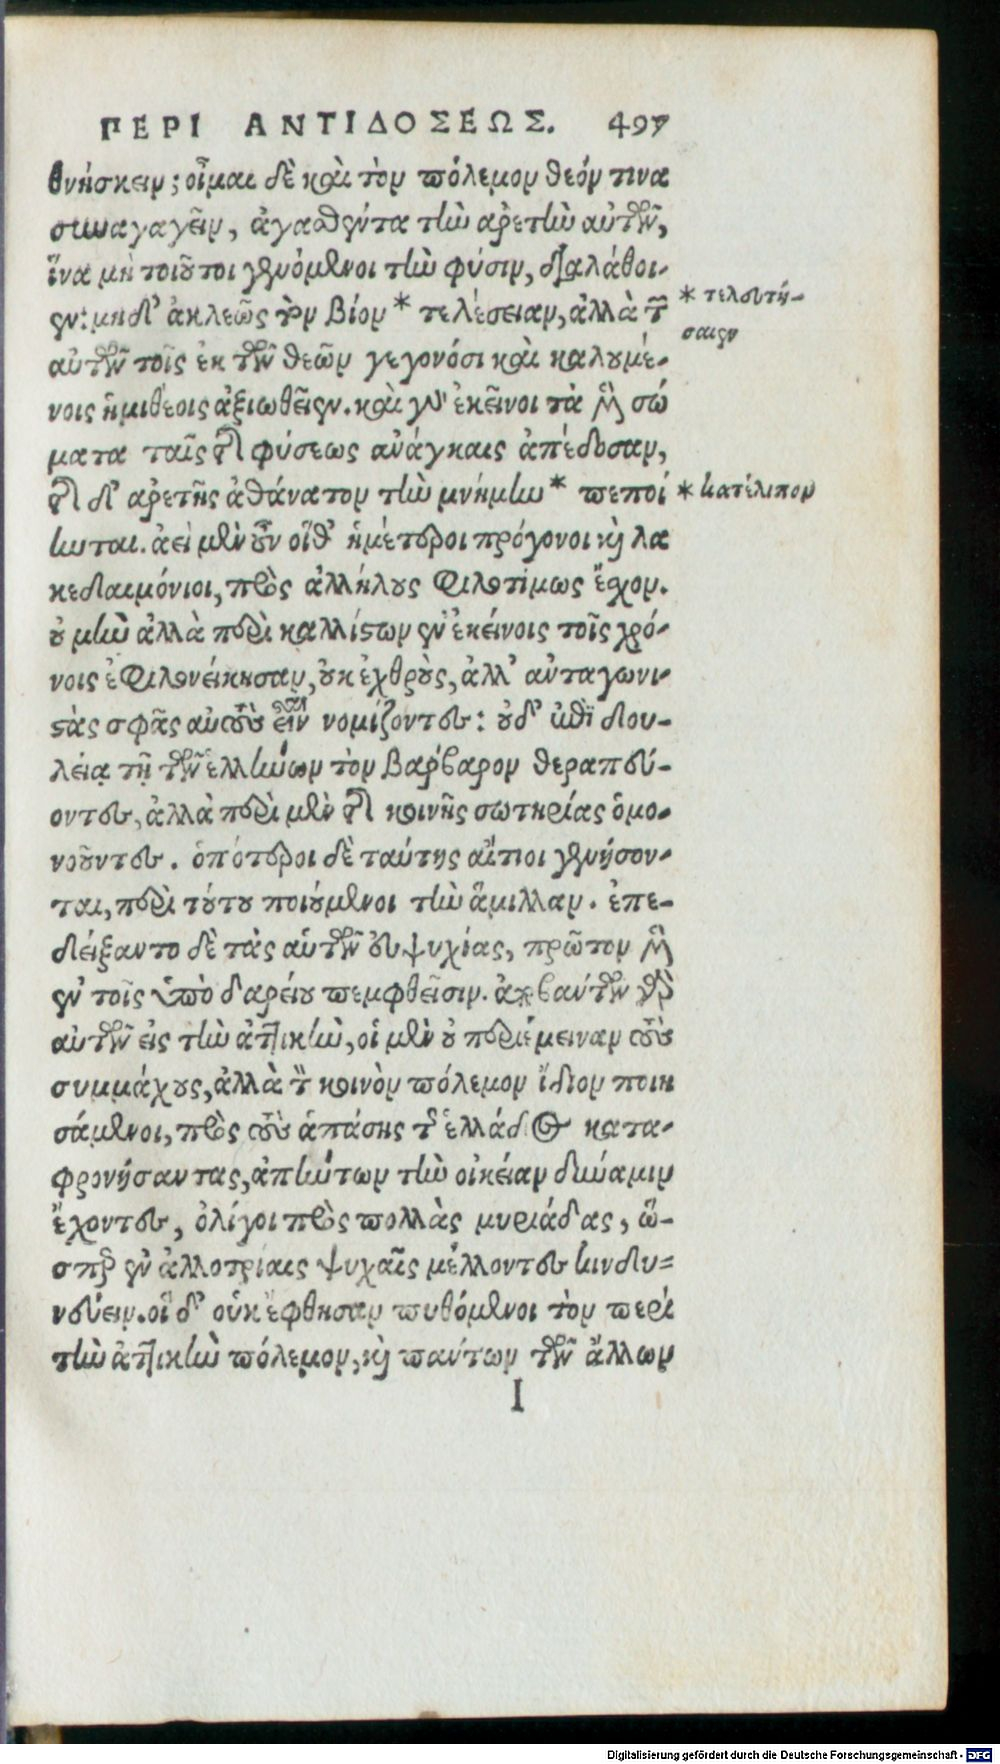 ΠΕΡΙ ΑΝΤΙΔΟΣΕΩΣ. 497
θνήσκειν; οἶμαι δὲ καὶ τὸν πόλεμον θεόν τινα
συναγαγεῖν, ἀγασθέντα τὴν ἀρετὴν αὐτῶν,
ἵνα μὴ τοιοῦτοι γενόμενοι τὴν φύσιν, διαλάθοι-
εν: μηδ' ἀκλεῶς τὸν βίον * τελέσειαν, ἀλλὰ τῶν
* τελευτή-
σαιεν
αὐτῶν τοῖς ἐκ τῶν θεῶν γεγονόσι καὶ καλουμέ-
νοις ἡμιθέοις ἀξιωθεῖεν. καὶ γὰρ ἐκείνοι τὰ μὲν σώ
ματα ταῖς τῆς φύσεως ἀνάγκαις ἀπέδοσαν,
τῆς δ' ἀρετῆς ἀθάνατον τὴν μνήμην * πεποί
* κατέλιπον
ηνται. ἀεὶ μὲν οὖν οἵθ' ἡμέτεροι πρόγονοι καὶ λα
κεδαιμόνιοι, πρὸς ἀλλήλους φιλοτίμως ἔχον.
οὐ μὴν ἀλλὰ περὶ καλλίστων ἐν ἐκείνοις τοῖς χρό-
νοις ἐφιλονείκησαν, οὐκ ἐχθροὺς, ἀλλ' ἀνταγωνι-
στὰς σφᾶς αὐτοὺς εἶναι νομίζοντες: οὐδ' ἐπὶ δου-
λείᾳ τῇ τῶν ἑλλήνων τὸν βάρβαρον θεραπεύ-
οντες, ἀλλὰ περὶ μὲν τῆς κοινῆς σωτηρίας ὁμο-
νοοῦντες. ὁπότεροι δὲ ταύτης αἴτιοι γενήσον-
ται, περὶ τούτου ποιούμενοι τὴν ἅμιλλαν. ἐπε-
δείξαντο δὲ τὰς αὑτῶν εὐψυχίας, πρῶτον μὲν
ἐν τοῖς ὑπὸ δαρείου πεμφθεῖσιν. ἀποβάντων γὰρ
αὐτῶν εἰς τὴν ἀττικὴν, οἱ μὲν οὐ περιέμειναν τοὺς
συμμάχους, ἀλλὰ τὸν κοινὸν πόλεμον ἴδιον ποιη
σάμενοι, πρὸς τοὺς ἁπάσης τῆς ἑλλάδος κατα-
φρονήσαντας, ἀπήντων τὴν οἰκείαν δύναμιν
ἔχοντες, ὀλίγοι πρὸς πολλὰς μυριάδας, ὥ-
σπερ ἐν ἀλλοτρίαις ψυχαῖς μέλλοντες κινδυ-
νεύειν. οἱ δ' οὐκ ἔφθησαν πυθόμενοι τὸν περὶ
τὴν ἀττικὴν πόλεμον, καὶ πάντων τῶν ἄλλων
I
Digitalisierung gefördert durch die Deutsche Forschungsgemeinschaft - DFG